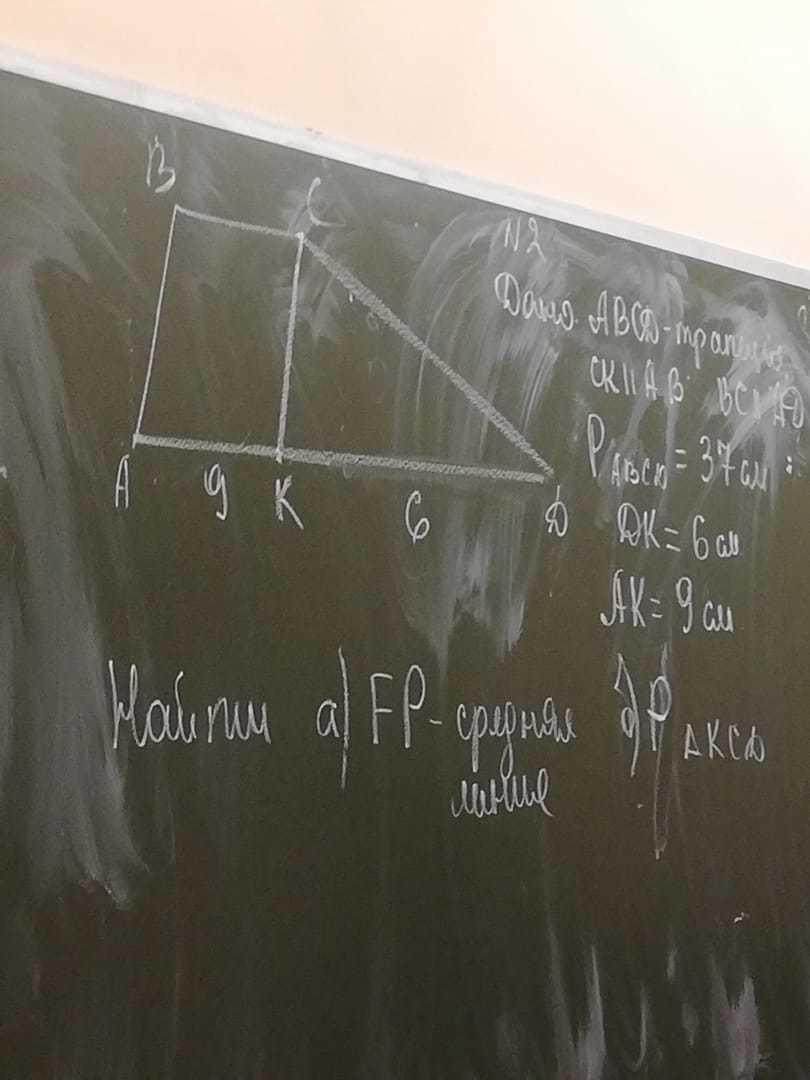 B
C
A
9
K
6
D
N2
Дано. ABCD-трапеция
CK||AB BC||AD
P ABCD = 37 см
DK = 6 см
AK = 9 см
Найти а) FP-средняя
линия
б) P ΔKCD